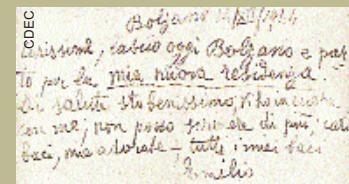 CDEC
Bolzano
Carissimi, lascio oggi Bolzano e par
to per la mia nuova residenza.
Di salute sto benissimo,
con me, non posso scrivere di più, cari
baci, mie adorate – tutti i miei baci
Emilio